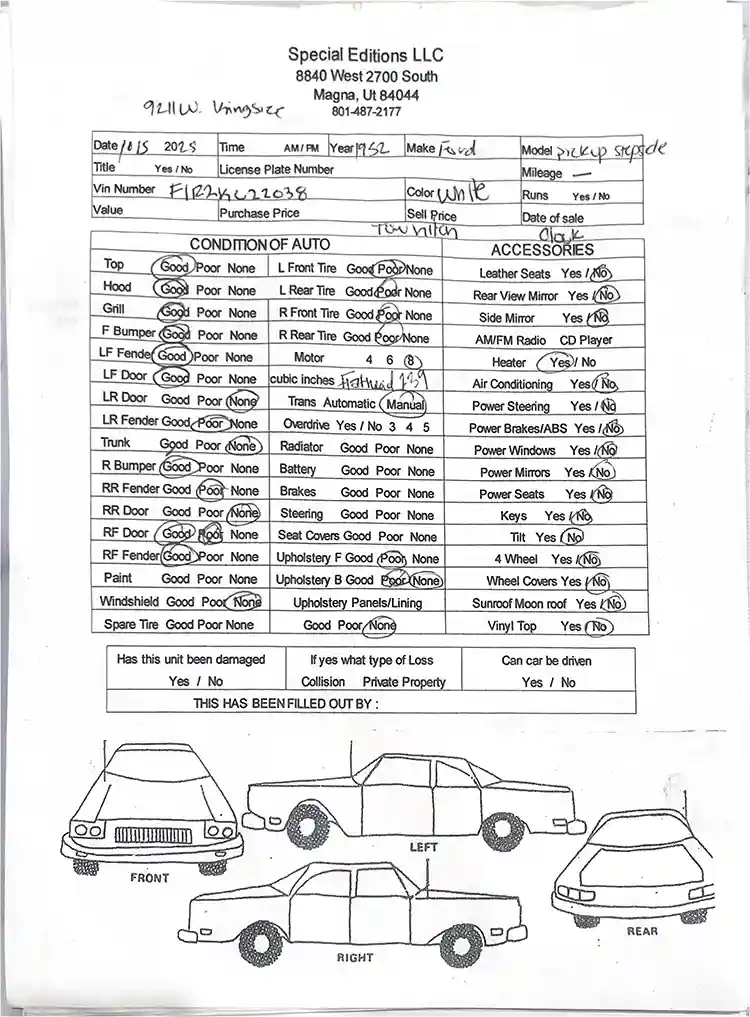 Special Editions LLC
8840 West 2700 South
Magna, Ut 84044
801-487-2177
9211 W.
Date 10 15 2025 Time AM / PM Year 1952 Make Ford Model pickup stepside
Title Yes / No License Plate Number Mileage —
Vin Number F1R2KC22038 Color White Runs Yes / No
Value Purchase Price Sell Price Date of sale
Tow hitch Clock
CONDITION OF AUTO ACCESSORIES
Top Good Poor None L Front Tire Good Poor None Leather Seats Yes / No
Hood Good Poor None L Rear Tire Good Poor None Rear View Mirror Yes / No
Grill Good Poor None R Front Tire Good Poor None Side Mirror Yes / No
F Bumper Good Poor None R Rear Tire Good Poor None AM/FM Radio CD Player
LF Fender Good Poor None Motor 4 6 8 Heater Yes / No
LF Door Good Poor None cubic inches Flathead 239 Air Conditioning Yes / No
LR Door Good Poor None Trans Automatic Manual Power Steering Yes / No
LR Fender Good Poor None Overdrive Yes / No 3 4 5 Power Brakes/ABS Yes / No
Trunk Good Poor None Radiator Good Poor None Power Windows Yes / No
R Bumper Good Poor None Battery Good Poor None Power Mirrors Yes / No
RR Fender Good Poor None Brakes Good Poor None Power Seats Yes / No
RR Door Good Poor None Steering Good Poor None Keys Yes / No
RF Door Good Poor None Seat Covers Good Poor None Tilt Yes / No
RF Fender Good Poor None Upholstery F Good Poor None 4 Wheel Yes / No
Paint Good Poor None Upholstery B Good Poor None Wheel Covers Yes / No
Windshield Good Poor None Upholstery Panels/Lining Sunroof Moon roof Yes / No
Spare Tire Good Poor None Good Poor None Vinyl Top Yes / No
Has this unit been damaged If yes what type of Loss Can car be driven
Yes / No Collision Private Property Yes / No
THIS HAS BEEN FILLED OUT BY :
LEFT
FRONT
REAR
RIGHT